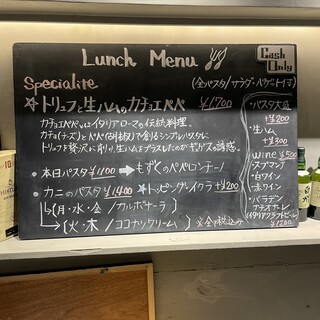 Lunch Menu
Cash Only
Specialite
(全パスタ/サラダ・バゲット付)
☆トリュフと生ハムのカチョエペペ ¥1700
カチョエペペはイタリアローマの伝統料理。
カチョ(チーズ)とペペ(胡椒)で創るシンプルパスタに
トリュフを贅沢に削り、生ハムをプラスした
・本日パスタ¥1100→もずくのペペロンチーノ
・カニのパスタ ¥1400 ☆トッピングイクラ+¥200
↳(月・水・金/カルボナーラ)
↳(火・木/ココナッツクリーム)
※全て税込み
・パスタ大盛
+¥200
・生ハム
+¥300
wine ¥500
・スプマンテ
・白ワイン
・赤ワイン
・バラデン
ナチオナーレ
(イタリアクラフトビール)
¥1200